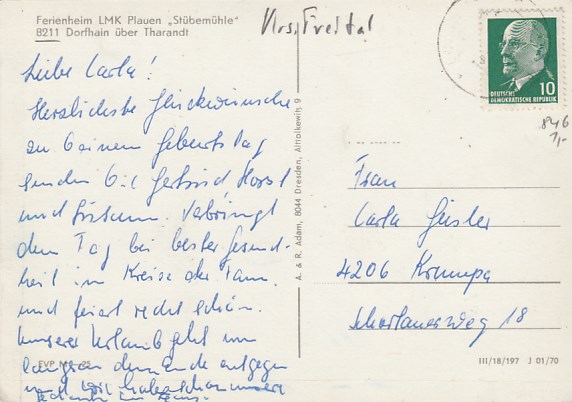 Ferienheim LMK Plauen „Stübemühle"
8211 Dorfhain über Tharandt
Krs. Freital
10
DEUTSCHE
DEMOKRATISCHE REPUBLIK
846
1,-
Liebe Carla!
Herzlichste Glückwünsche
zu Deinem Geburtstag
senden Dir Gertrud, Horst
und Verbringt
den Tag bei bester Gesund-
heit im Kreise der Fam.
und feiert recht schön.
Unser Urlaub geht nun
langsam dem Ende entgegen
und wir haben schon
Frau
Carla Geisler
4206 Krumpa
Schortauerweg 18
A. & R. Adam, 8044 Dresden, Altlolkewitz 9
EVP M
III/18/197 J 01/70